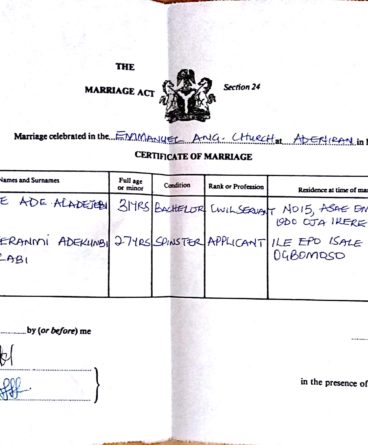 THE
MARRIAGE ACT Section 24
Marriage celebrated in the EMMANUEL ANG. CHURCH at ADENIRAN in
CERTIFICATE OF MARRIAGE
Names and Surnames Full age or minor Condition Rank or Profession Residence at time of
E ADE ALADEJEBI 31YRS BACHELOR CIVIL SERVANT NO15,
ODO OJA IKERE
ERANMI ADEKUNBI 27YRS SPINSTER APPLICANT ILE EPO ISALE
LABI OGBOMOSO
by (or before) me
in the presence of